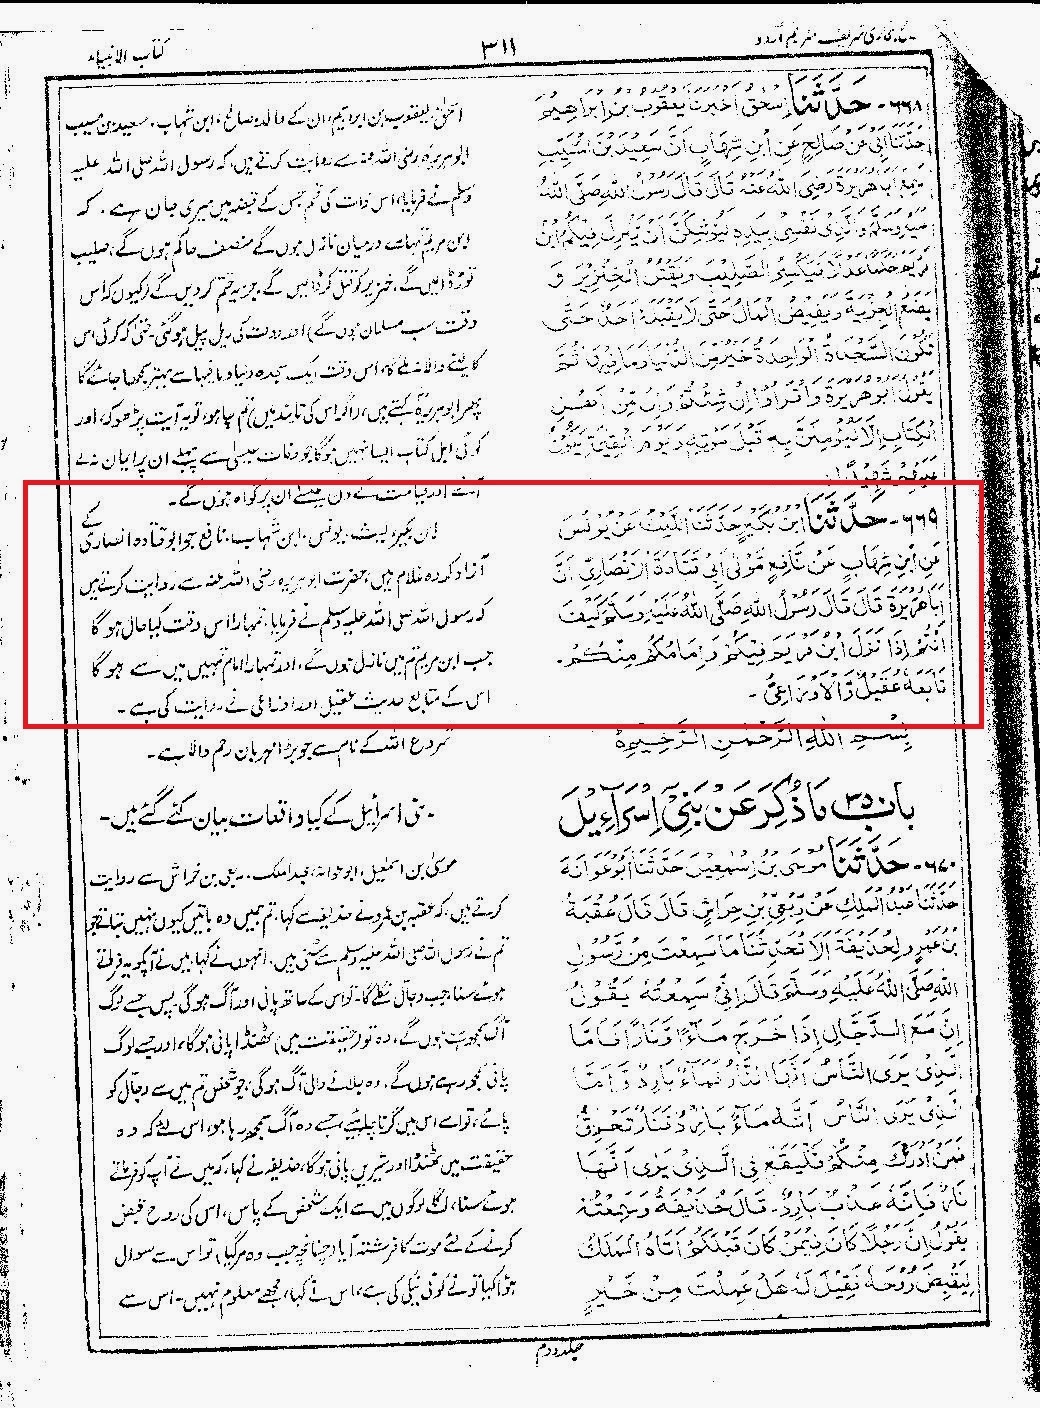 صحیح بخاری شریف مترجم اردو
٣١١
کتاب الانبیاء
٦٦٨- حَدَّثَنَا إسحق أخبرنا يعقوب بن إبراهيم
حَدَّثَنَا أَبِي عَنْ صَالِحٍ عَنِ ابْنِ شِهَابٍ أَنَّ سَعِيدَ بْنَ الْمُسَيِّبِ
سَمِعَ أَبَا هُرَيْرَةَ رَضِيَ اللّٰهُ عَنْهُ قَالَ قَالَ رَسُولُ اللّٰهِ صَلَّى اللّٰهُ
عَلَيْهِ وَسَلَّمَ وَالَّذِي نَفْسِي بِيَدِهِ لَيُوشِكَنَّ أَنْ يَنْزِلَ فِيكُمُ ابْنُ
مَرْيَمَ حَكَمًا عَدْلًا فَيَكْسِرَ الصَّلِيبَ وَيَقْتُلَ الْخِنْزِيرَ وَ
يَضَعَ الْجِزْيَةَ وَيَفِيضَ الْمَالُ حَتَّى لَا يَقْبَلَهُ أَحَدٌ حَتَّى
تَكُونَ السَّجْدَةُ الْوَاحِدَةُ خَيْرٌ مِنَ الدُّنْيَا وَمَا فِيهَا ثُمَّ
يَقُولُ أَبُو هُرَيْرَةَ وَاقْرَءُوا إِنْ شِئْتُمْ وَإِنْ مِنْ أَهْلِ
الْكِتَابِ إِلَّا لَيُؤْمِنَنَّ بِهِ قَبْلَ مَوْتِهِ وَيَوْمَ الْقِيٰمَةِ يَكُونُ
عَلَيْهِمْ شَهِيدًا
٦٦٩- حَدَّثَنَا ابْنُ بُكَيْرٍ حَدَّثَنَا اللَّيْثُ عَنْ يُونُسَ
عَنِ ابْنِ شِهَابٍ عَنْ نَافِعٍ مَوْلَى أَبِي قَتَادَةَ الْأَنْصَارِيِّ أَنَّ
أَبَا هُرَيْرَةَ قَالَ قَالَ رَسُولُ اللّٰهِ صَلَّى اللّٰهُ عَلَيْهِ وَسَلَّمَ كَيْفَ
أَنْتُمْ إِذَا نَزَلَ ابْنُ مَرْيَمَ فِيكُمْ وَإِمَامُكُمْ مِنْكُمْ.
تَابَعَهُ عُقَيْلٌ وَالْأَوْزَاعِيُّ-
بِسْمِ اللّٰهِ الرَّحْمٰنِ الرَّحِيمِ
باب ٣٥ مَا ذُكِرَ عَنْ بَنِي إِسْرَآءِيلَ
٦٧٠- حَدَّثَنَا مُوسَى بْنُ إِسْمٰعِيلَ حَدَّثَنَا أَبُو عَوَانَةَ
حَدَّثَنَا عَبْدُ الْمَلِكِ عَنْ رِبْعِيِّ بْنِ حِرَاشٍ قَالَ قَالَ عُقْبَةُ
بْنُ عَمْرٍو لِحُذَيْفَةَ أَلَا تُحَدِّثُنَا مَا سَمِعْتَ مِنْ رَسُولِ
اللّٰهِ صَلَّى اللّٰهُ عَلَيْهِ وَسَلَّمَ قَالَ إِنِّي سَمِعْتُهُ يَقُولُ
إِنَّ مَعَ الدَّجَّالِ إِذَا خَرَجَ مَاءً وَنَارًا فَأَمَّا
الَّذِي يَرَى النَّاسُ أَنَّهَا النَّارُ فَمَاءٌ بَارِدٌ وَأَمَّا
الَّذِي يَرَى النَّاسُ أَنَّهُ مَاءٌ بَارِدٌ فَنَارٌ تُحْرِقُ
فَمَنْ أَدْرَكَ مِنْكُمْ فَلْيَقَعْ فِي الَّذِي يَرَى أَنَّهَا
نَارٌ فَإِنَّهُ عَذْبٌ بَارِدٌ- قَالَ حُذَيْفَةُ وَسَمِعْتُهُ
يَقُولُ إِنَّ رَجُلًا كَانَ فِيمَنْ كَانَ قَبْلَكُمْ أَتَاهُ الْمَلَكُ
لِيَقْبِضَ رُوحَهُ فَقِيلَ لَهُ هَلْ عَمِلْتَ مِنْ خَيْرٍ
اسحٰق، یعقوب بن ابراہیم، ان کے والد، صالح، ابن شہاب، سعید بن مسیب
ابوہریرہ رضی اللہ عنہ سے روایت کرتے ہیں، کہ رسول اللہ صلی اللہ علیہ
وسلم نے فرمایا، اس ذات کی قسم جس کے قبضہ میں میری جان ہے، کہ
ابن مریم تمہارے درمیان نازل ہوں گے منصف حاکم ہوں گے، صلیب
توڑ ڈالیں گے، خنزیر کو قتل کر ڈالیں گے، جزیہ ختم کردیں گے (کیوں کہ اس
وقت سب مسلمان ہوں گے) اور دولت کی ریل پیل ہوگی۔ حتیٰ کہ کوئی اس
کا لینے والا نہ ملے گا، اس وقت ایک سجدہ دنیا و مافیہا سے بہتر سمجھا جائے گا
پھر ابوہریرہ کہتے ہیں، (اگر اس کی تائید میں) تم چاہو، تو یہ آیت پڑھو کہ، اور
کوئی اہل کتاب ایسا نہیں ہوگا جو وفات عیسیٰ سے پہلے ان پر ایمان نہ لے
آئے اور قیامت کے دن عیسیٰ ان پر گواہ ہوں گے۔
ابن بکیر، لیث، یونس، ابن شہاب، نافع جو ابوقتادہ انصاری کے
آزاد کردہ غلام ہیں، حضرت ابوہریرہ رضی اللہ عنہ سے روایت کرتے ہیں
کہ رسول اللہ صلی اللہ علیہ وسلم نے فرمایا، تمہارا اس وقت کیا حال ہو گا
جب ابن مریم تم میں نازل ہوں گے، اور تمہارا امام تمہیں میں سے ہو گا
اس کے متابع حدیث عقیل اور اوزاعی نے روایت کی ہے۔
شروع اللہ کے نام سے جو بڑا مہربان رحم والا ہے۔
بنی اسرائیل کے کیا واقعات بیان کئے گئے ہیں۔
موسیٰ بن اسمٰعیل، ابوعوانہ، عبدالملک، ربعی بن خراش سے روایت
کرتے ہیں، کہ عقبہ بن عمرو نے حذیفہ سے کہا، تم ہمیں وہ باتیں کیوں نہیں بتاتے جو
تم نے رسول اللہ صلی اللہ علیہ وسلم سے سنی ہیں، انہوں نے کہا، میں نے آپ کو یہ فرماتے
ہوئے سنا، جب دجال نکلے گا۔ تو اس کے ساتھ پانی اور آگ ہوگی۔ پس جسے لوگ
آگ سمجھ رہے ہوں گے، وہ تو (حقیقت میں) ٹھنڈا پانی ہوگا، اور جسے لوگ
پانی سمجھ رہے ہوں گے، وہ جلانے والی آگ ہوگی، جو شخص تم میں سے دجال کو
پائے، تو اسے اس میں گرنا چاہیئے، جسے وہ آگ سمجھ رہا ہو، اس لئے کہ وہ
حقیقت میں ٹھنڈا اور شیریں پانی ہوگا، حذیفہ نے کہا، کہ میں نے آپ کو فرماتے
ہوئے سنا، اگلے لوگوں میں سے ایک شخص کے پاس، اس کی روح قبض
کرنے کے لئے موت کا فرشتہ آیا (چنانچہ جب وہ مرگیا) تو اس سے سوال
ہوا کیا تو نے کوئی نیکی کی ہے، اس نے کہا، مجھے معلوم نہیں۔ اس سے
جلد دوم